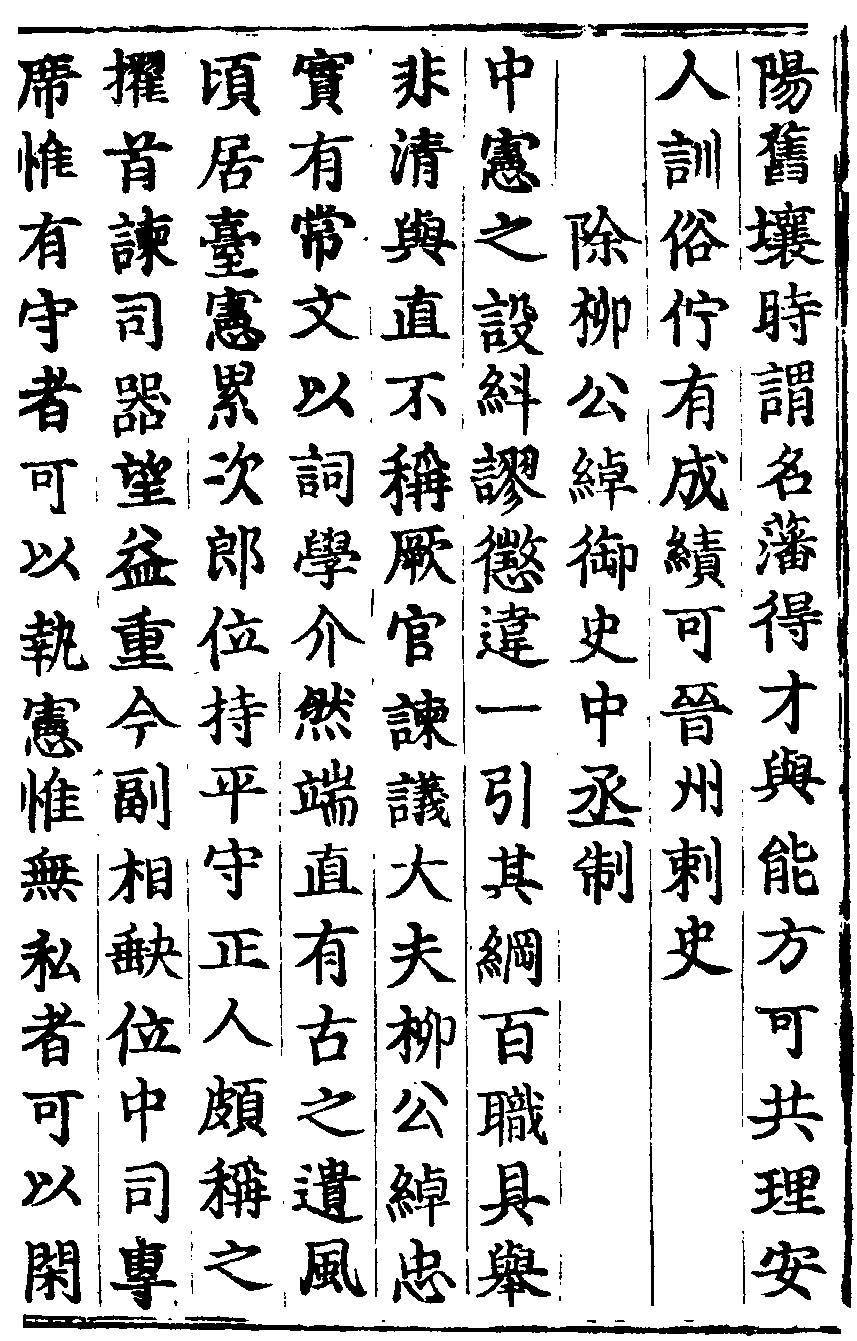 陽舊壤時謂名藩得才與能方可共理安
人訓俗佇有成績可晉州刺史
除柳公綽御史中丞制
中憲之設糾謬懲違一引其綱百職具舉
非清與直不稱厥官諫議大夫柳公綽忠
實有常文以詞學介然端直有古之遺風
頃居臺憲累次郎位持平守正人頗稱之
擢首諫司器望益重今副相缺位中司專
席惟有守者可以執憲惟無私者可以閑